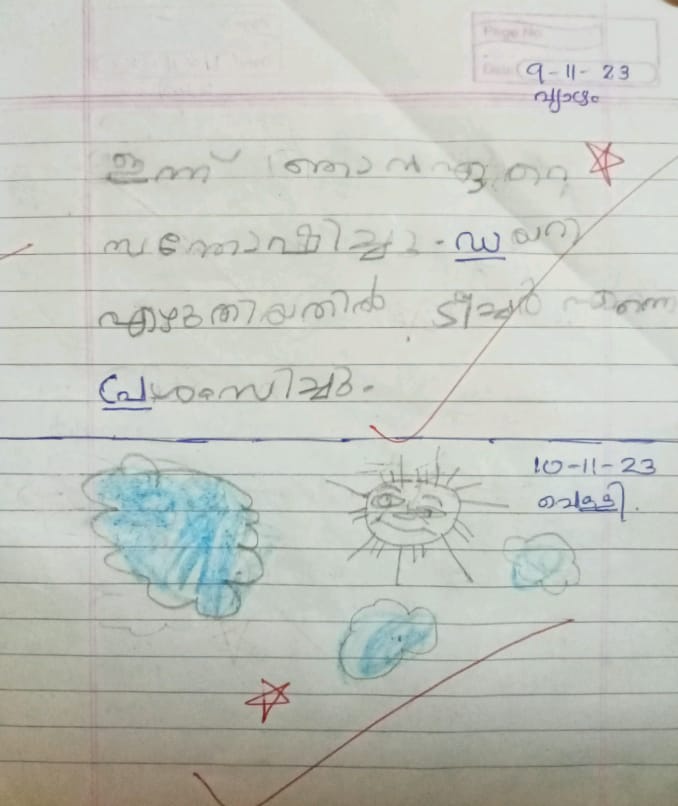 Page No
Date 9-11-23
വ്യാഴം
ഇന്ന് ഞാൻ ഏറെ
സന്തോഷിച്ചു. ഡയറി
എഴുതിയതിൽ ടീച്ചർ എന്നെ
പ്രേശംസിച്ചു.
10-11-23
വെള്ളി.